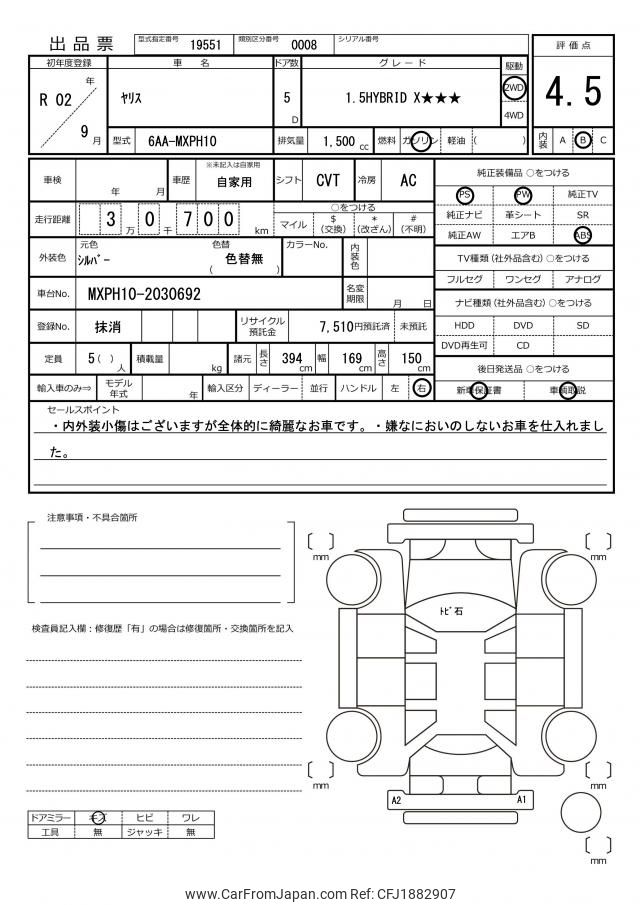 出品票 型式指定番号 19551 類別区分番号 0008 シリアル番号
評価点
4.5
内装 A B C
初年度登録 車名 ドア数 グレード 駆動
R 02 年 9月
ﾔﾘｽ 5 D 1.5HYBRID X★★★ 2WD 4WD
型式 6AA-MXPH10 排気量 1,500 cc 燃料 ガソリン 軽油 ( )
車検 年 月 車歴 ※未記入は自家用 自家用 シフト CVT 冷房 AC
走行距離 3 万 0 千 7 0 0 km ○をつける
マイル $(交換) *(改ざん) #(不明)
外装色 元色 ｼﾙﾊﾞｰ 色替 ( 色替無 ) カラーNo. 内装色
車台No. MXPH10-2030692 名変期限 月 日
登録No. 抹消 リサイクル預託金 7,510円預託済 未預託
定員 5 ( ) 人 積載量 kg 諸元 長さ 394 cm 幅 169 cm 高さ 150 cm
輸入車のみ⇒ モデル年式 年 輸入区分 ディーラー 並行 ハンドル 左 右
純正装備品 ○をつける
PS PW 純正TV
純正ナビ 革シート SR
純正AW エアB ABS
TV種類 (社外品含む) ○をつける
フルセグ ワンセグ アナログ
ナビ種類 (社外品含む) ○をつける
HDD DVD SD
DVD再生可 CD
後日発送品 ○をつける
新車保証書 車輌取説
セールスポイント
・内外装小傷はございますが全体的に綺麗なお車です。・嫌なにおいのしないお車を仕入れまし
た。
注意事項・不具合箇所
検査員記入欄：修復歴「有」の場合は修復箇所・交換箇所を記入
ドアミラー キズ ヒビ ワレ
工具 無 ジャッキ 無
mm mm
ﾄﾋﾞ石
mm mm
A2 A1
mm
www.CarFromJapan.com Ref: CFJ1882907